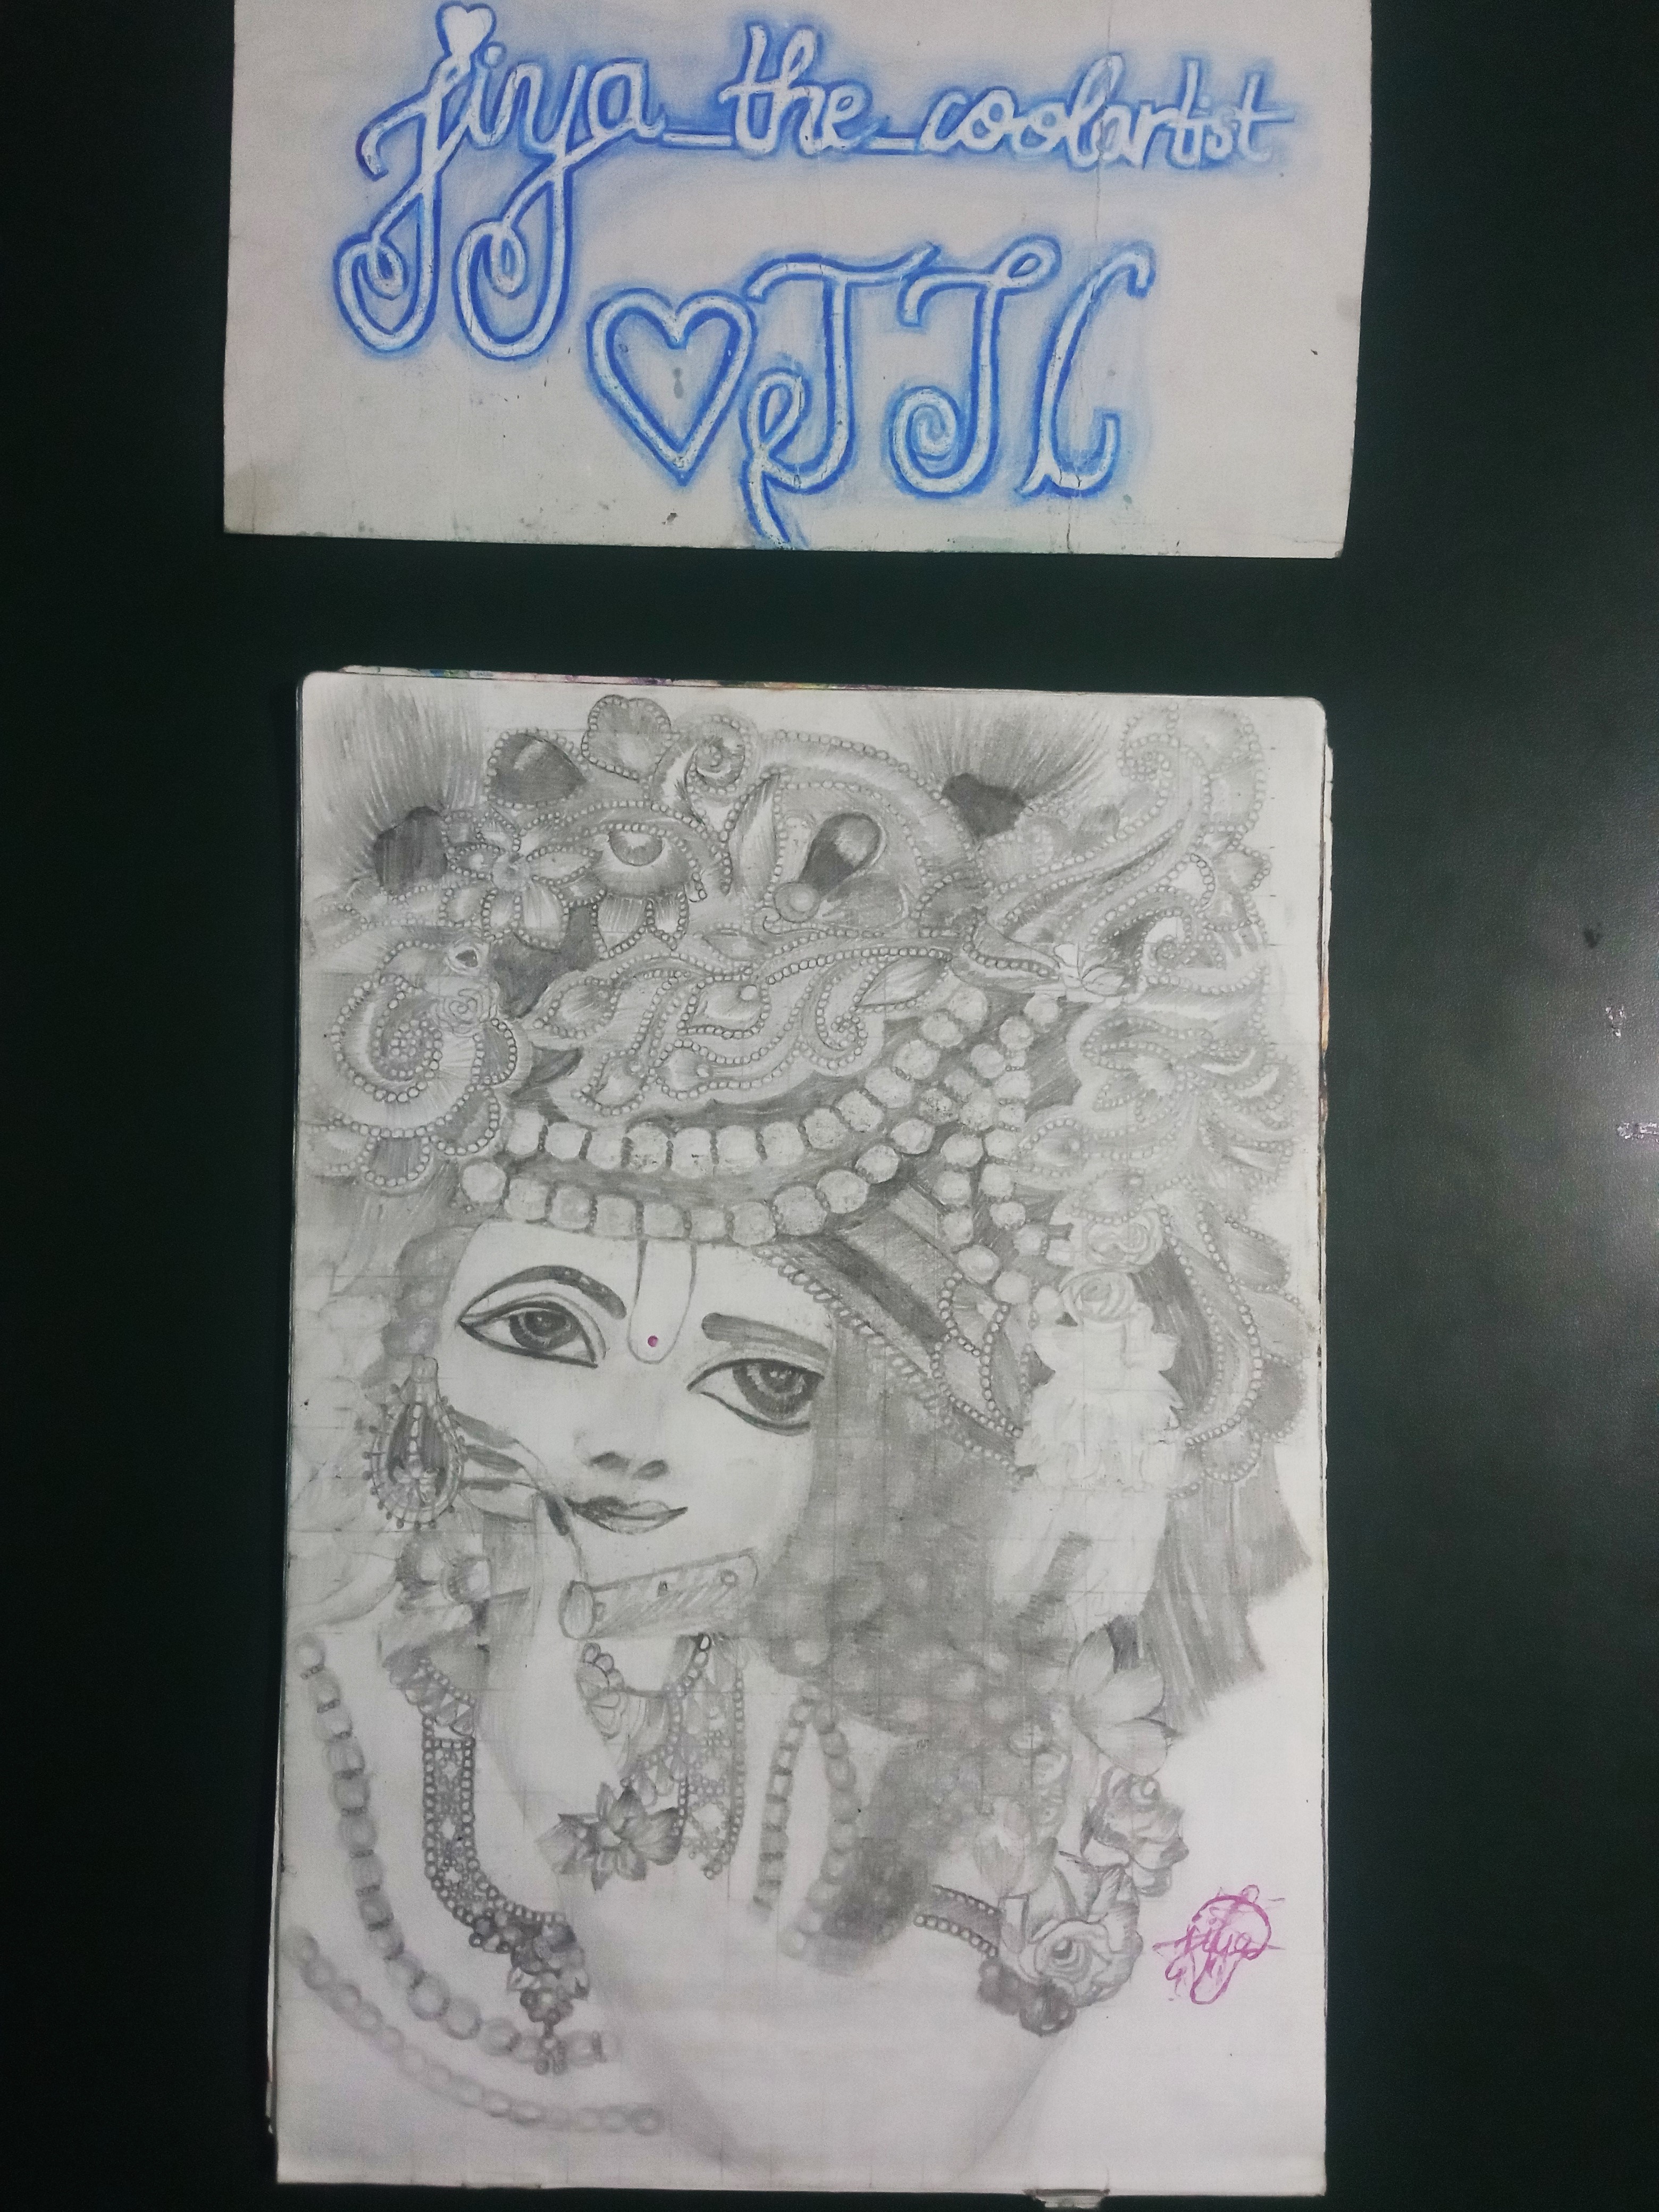 Jiya_the_coolartist
JTC
Jiya